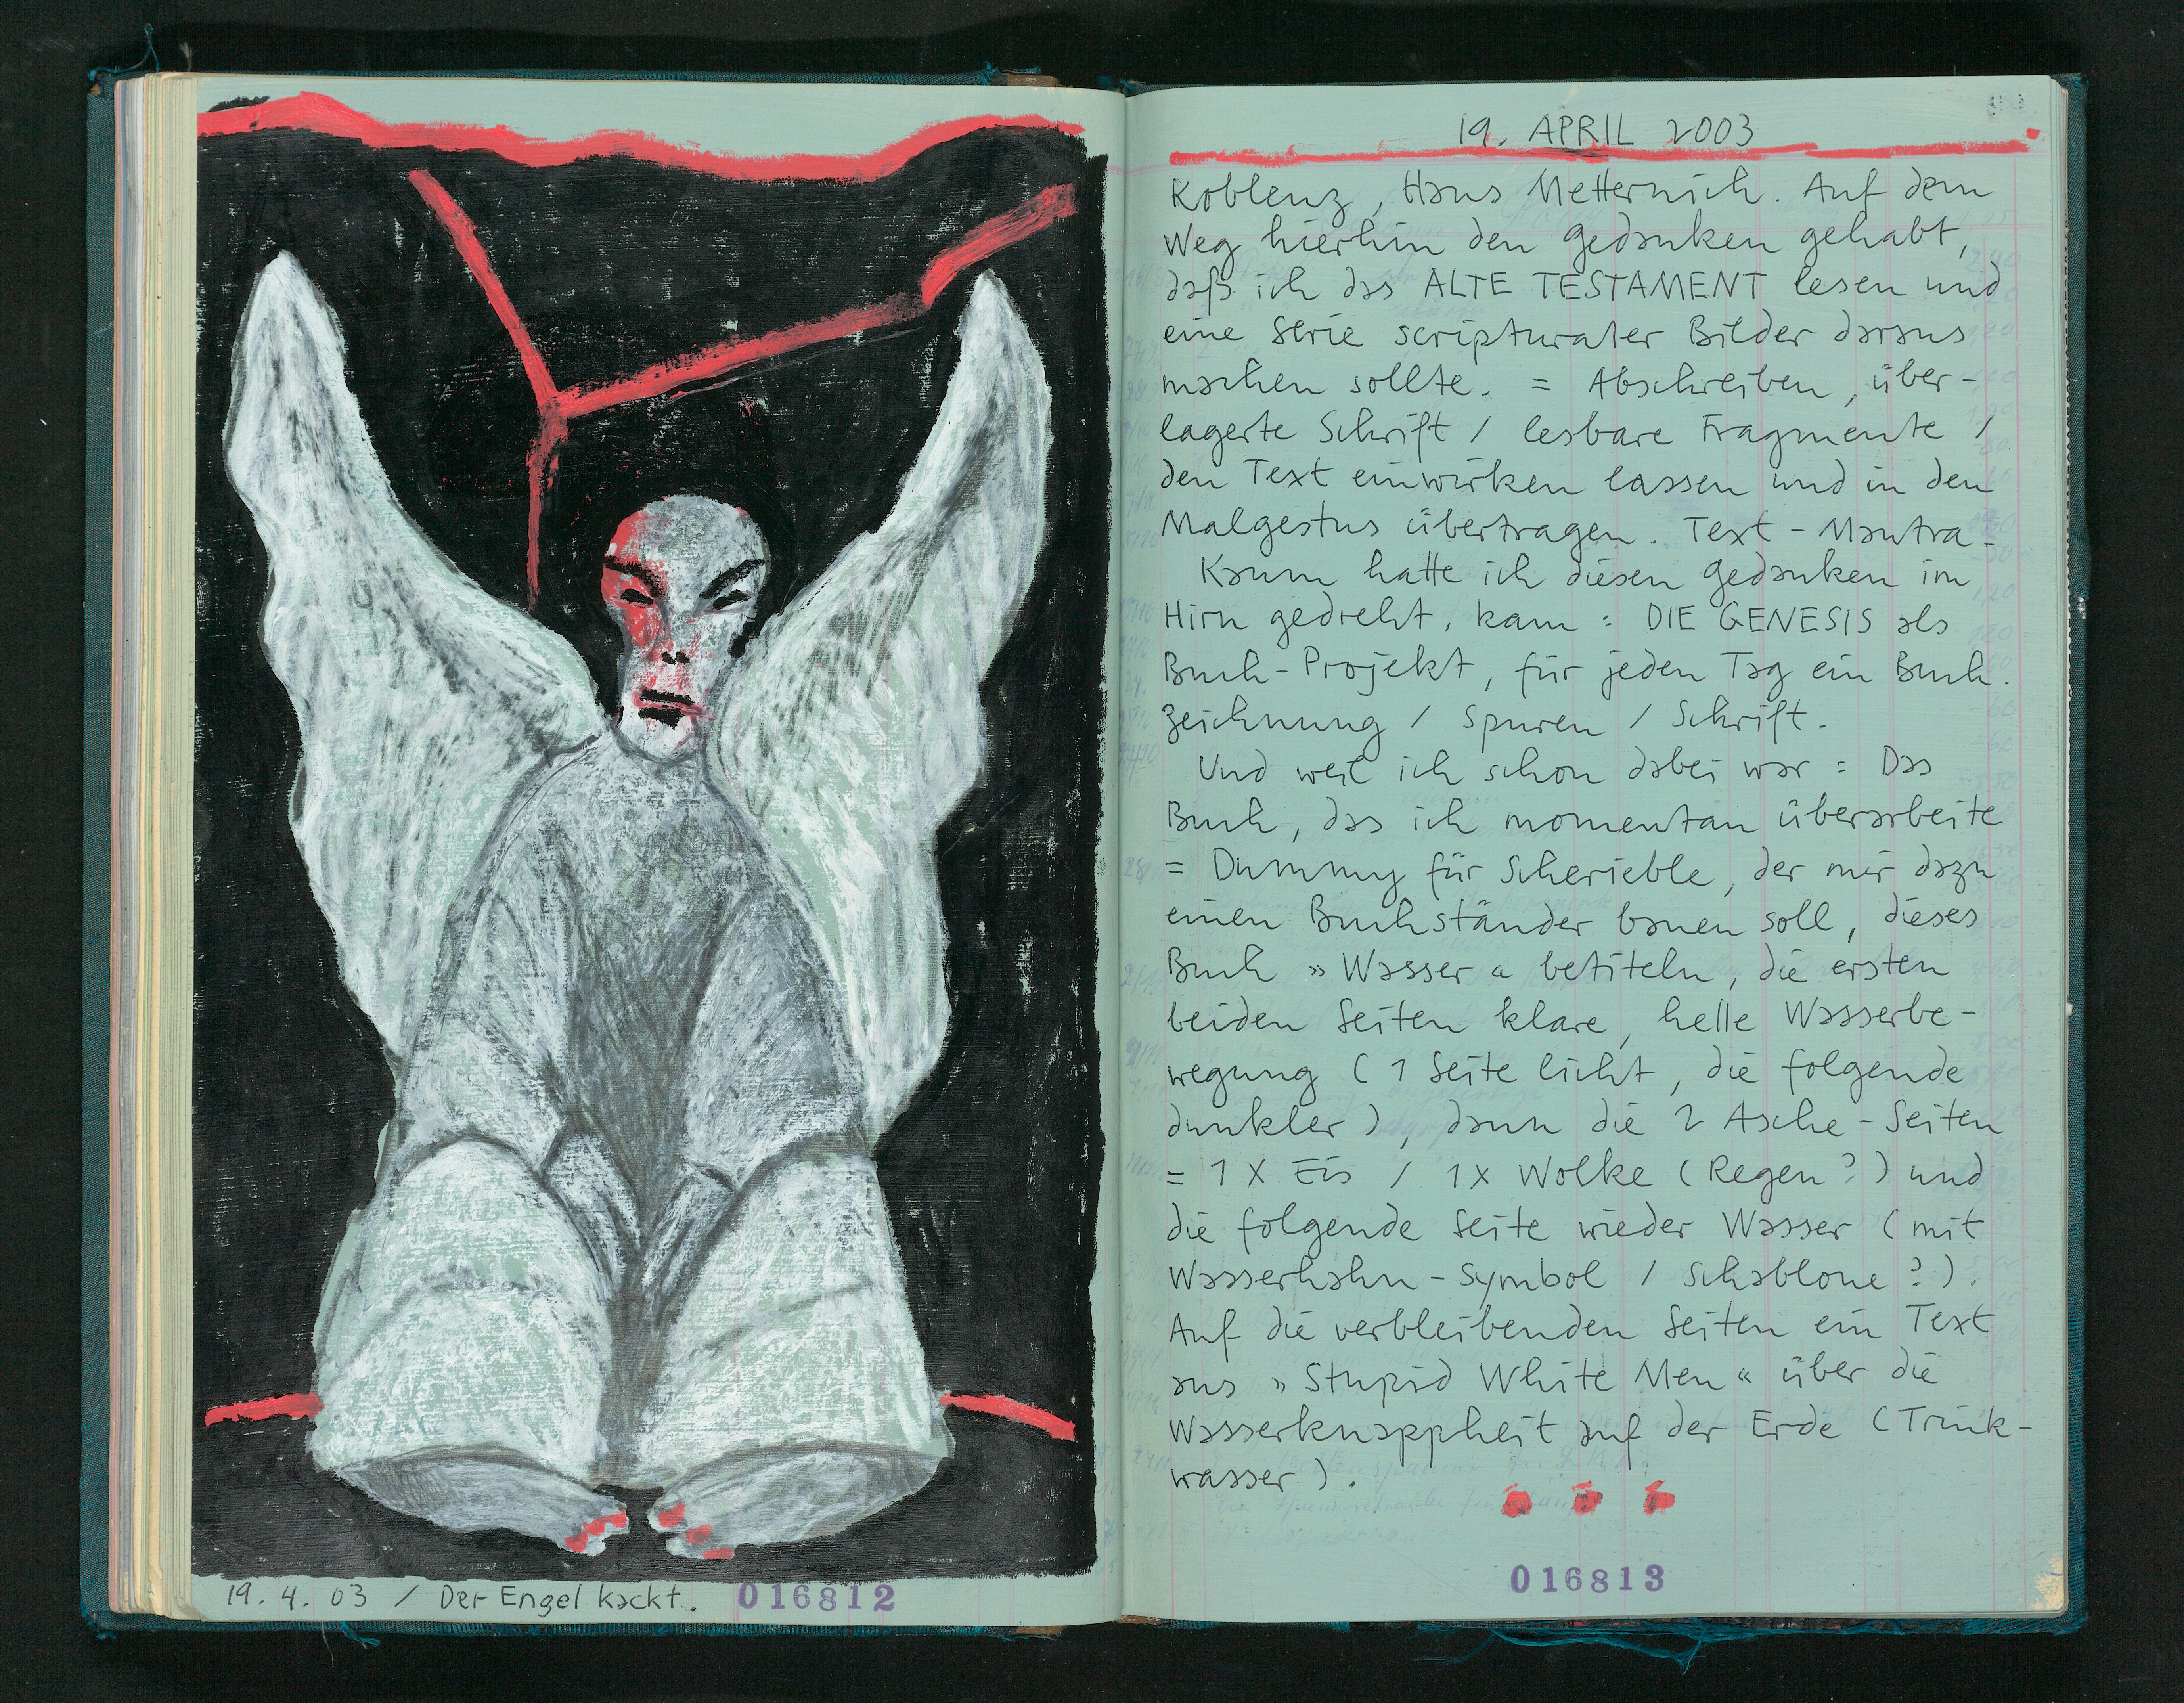 19. APRIL 2003
Koblenz, Haus Metternich. Auf dem
Weg hierhin den Gedanken gehabt,
daß ich das ALTE TESTAMENT lesen und
eine Serie scripturaler Bilder daraus
machen sollte. = Abschreiben, über-
lagerte Schrift / lesbare Fragmente /
den Text einwirken lassen und in den
Malgestus übertragen. Text-Mantra-
Kaum hatte ich diesen Gedanken im
Hirn gedreht, kam: DIE GENESIS als
Buch-Projekt, für jeden Tag ein Buch.
Zeichnung / Spuren / Schrift.
Und weil ich schon dabei war: Das
Buch, das ich momentan überarbeite
= Dummy für Scherieble, der mir dazu
einen Buchständer bauen soll, dieses
Buch »Wasser« betiteln, die ersten
beiden Seiten klare, helle Wasserbe-
wegung (1 Seite licht, die folgende
dunkler), dann die 2 Asche-Seiten
= 1 X Eis / 1X Wolke (Regen?) und
die folgende Seite wieder Wasser (mit
Wasserhahn-Symbol / Schablone?).
Auf die verbleibenden Seiten ein Text
aus »Stupid White Men« über die
Wasserknappheit auf der Erde (Trink-
wasser).
19.4.03 / Der Engel kackt. 016812
016813